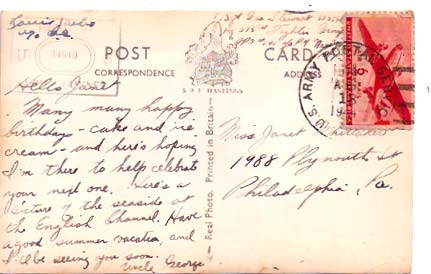 POST
CORRESPONDENCE
CARD
ADDRESS
S & E HASTINGS
Real Photo. Printed in Britain
U.S. ARMY POSTAL SERVICE
Hello Jane!
Many many happy
birthday - cake and ice
cream - and here's hoping
I'm there to help celebrate
your next one. Here's a
picture of the seaside at
the English Channel. Have
a good summer vacation, and
I'll be seeing you soon.
Uncle George
Miss Janet Whittaker
1988 Plymouth St
Philadelphia, Pa.